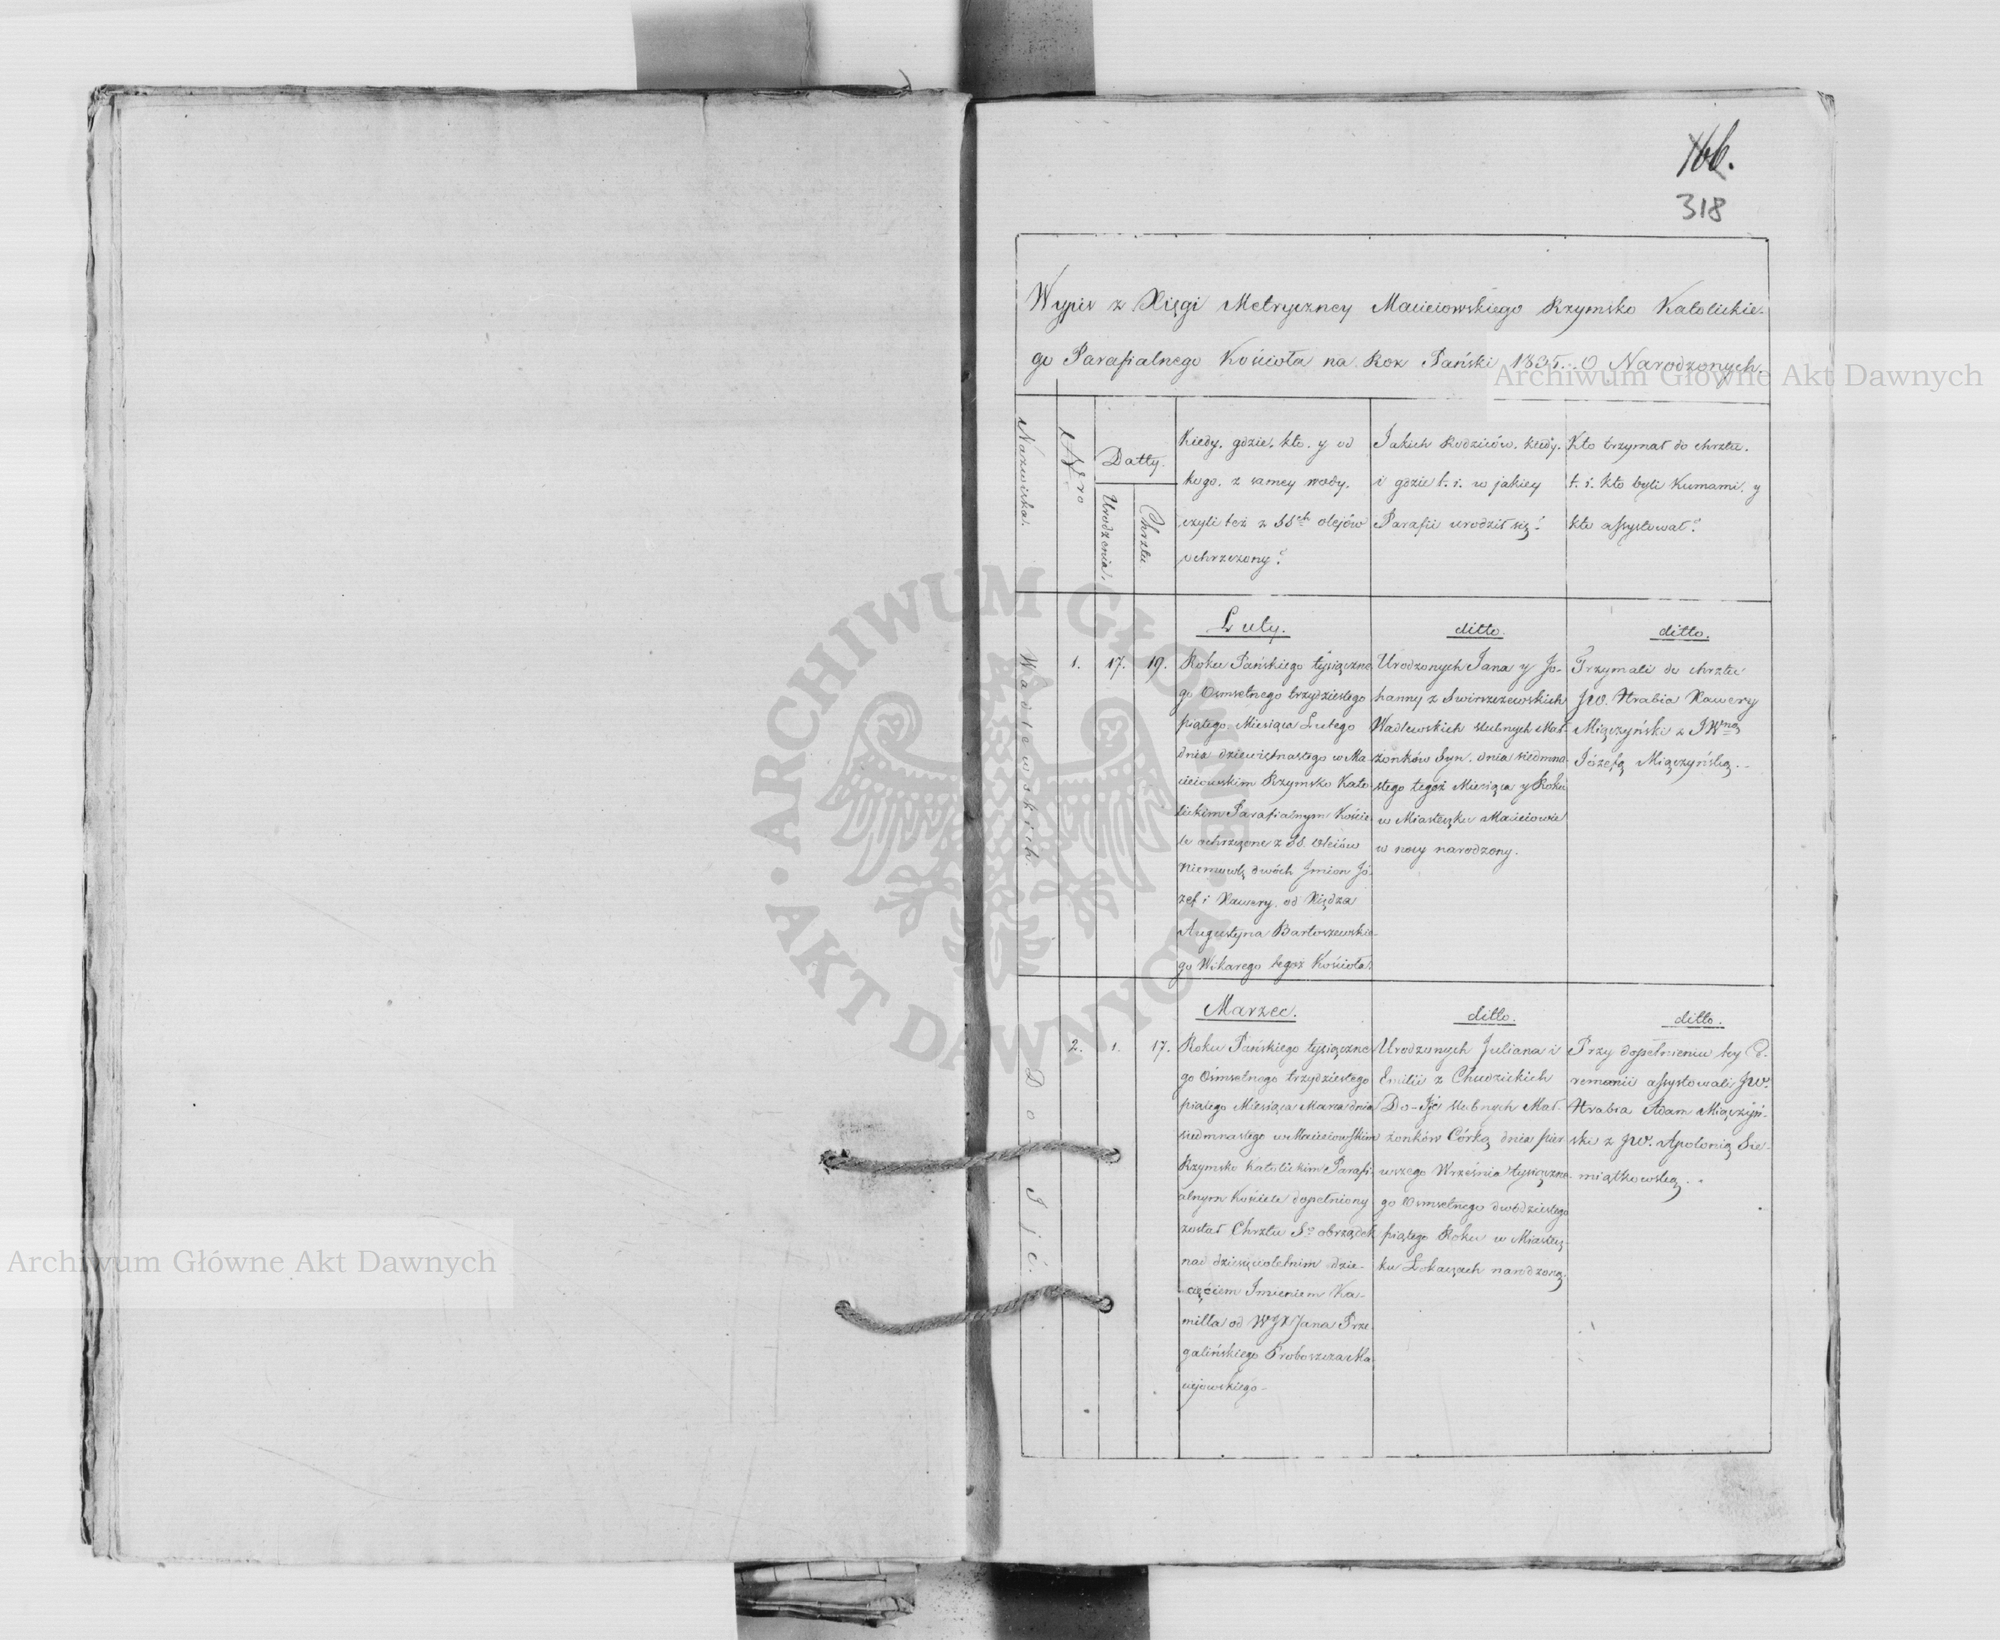 166.
318
Wypis z Xięgi Metryczney Macieiowskiego Rzymsko Katolickie-
go Parafialnego Kościoła na Rok Pański 1835. O Narodzonych.
Nazwiska.
Nro
Datty.
Urodzenia.
Chrztu.
Kiedy, gdzie, kto, y od
kogo, z samey wody,
czyli też z SSch olejów
ochrzczony?
Jakich Rodziców, kiedy,
i gdzie t. i. w jakiey
Parafii urodził się?
Kto trzymał do chrztu,
t. i. kto byli Kumami, y
kto assystował?
Wadlewskich.
1.
17.
19.
Luty.
Roku Pańskiego tysiączne
go Osmsetnego trzydziestego
piątego Miesiąca Lutego
dnia dziewiętnastego w Ma
cieiowskim Rzymsko Kato
lickim Parafialnym Koście-
le ochrzczone z SS. Oleiów
Niemowlę dwóch Imion Jó-
zef i Xawery, od Xiędza
Augustyna Bartoszewskie-
go Wikarego tegoż Kościoła.
ditto.
Urodzonych Jana y Jo-
hanny z Swirszczewskich
Wadlewskich slubnych Mał-
żonków Syn, dnia siedmna
stego tegoż Miesiąca y Roku
w Miasteczku Macieiowie
w nocy narodzony.
ditto.
Trzymali do chrztu
JW. Hrabia Xawery
Miączyński z JWną
Józefą Miączyńską.
Do Ijć.
2.
1.
17.
Marzec.
Roku Pańskiego tysiączne
go Osmsetnego trzydziestego
piątego Miesiąca Marca dnia
siedmnastego w Macieiowskim
Rzymsko Katolickim Parafi
alnym Kościele dopełniony
został Chrztu So obrządek
nad dziesięcioletnim dzie-
cięciem Imieniem Ka-
milla od WJX Jana Prze
galińskiego Proboszcza Ma
ciejowskiego-
ditto.
Urodzonych Juliana i
Emilii z Chudzickich
Do-Ijć slubnych Mał-
żonków Córką dnia pier
wszego Września tysiączne
go Osmsetnego dwódziestego
piątego Roku w Miastecz-
ku Łokaczach narodzoną.
ditto.
Przy dopełnieniu tey Ce-
remonii assystowali JW.
Hrabia Adam Miączyń-
ski z JW. Apolonią Sie-
miątkowską.
Archiwum Główne Akt Dawnych
Archiwum Główne Akt Dawnych
ARCHIWUM GŁÓWNE
AKT DAWNYCH